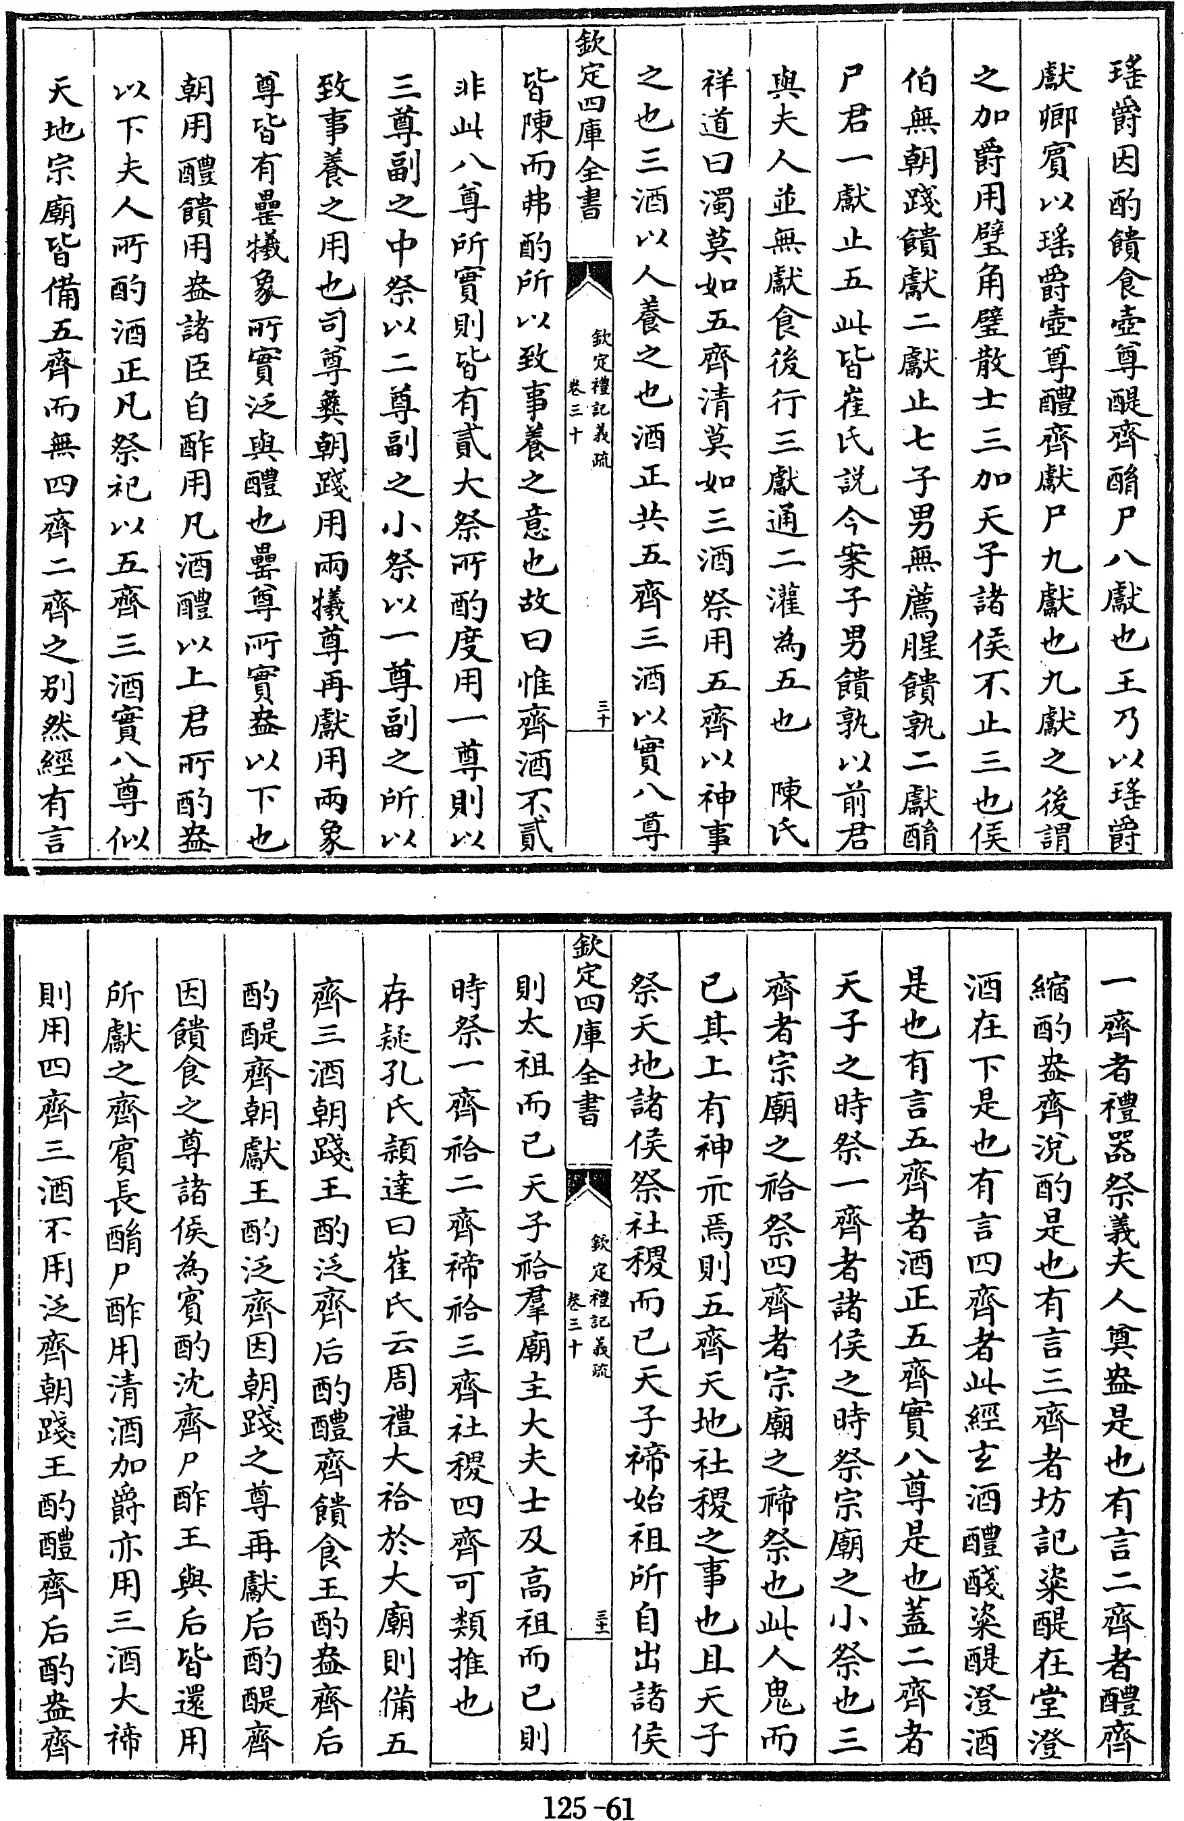 瑤爵因酌饋食壺尊醍齊酳尸八獻也王乃以瑤爵
獻卿賓以瑤爵壺尊醴齊獻尸九獻也九獻之後謂
之加爵用璧角璧散士三加天子諸侯不止三也侯
伯無朝踐饋獻二獻止七子男無薦腥饋孰二獻酳
尸君一獻止五此皆崔氏説今案子男饋孰以前君
與夫人並無獻食後行三獻通二灌為五也 陳氏
祥道曰濁莫如五齊清莫如三酒祭用五齊以神事
之也三酒以人養之也酒正共五齊三酒以實八尊
欽定四庫全書
欽定禮記義疏
卷三十
三十
皆陳而弗酌所以致事養之意也故曰惟齊酒不貳
非此八尊所實則皆有貳大祭所酌度用一尊則以
三尊副之中祭以二尊副之小祭以一尊副之所以
致事養之用也司尊彝朝踐用兩犧尊再獻用兩象
尊皆有罍犧象所實泛與醴也罍尊所實盎以下也
朝用醴饋用盎諸臣自酢用凡酒醴以上君所酌盎
以下夫人所酌酒正凡祭祀以五齊三酒實八尊似
天地宗廟皆備五齊而無四齊二齊之別然經有言
一齊者禮器祭義夫人奠盎是也有言二齊者醴齊
縮酌盎齊涚酌是也有言三齊者坊記粢醍在堂澄
酒在下是也有言四齊者此經玄酒醴醆粢醍澄酒
是也有言五齊者酒正五齊實八尊是也蓋二齊者
天子之時祭一齊者諸侯之時祭宗廟之小祭也三
齊者宗廟之祫祭四齊者宗廟之禘祭也此人鬼而
已其上有神示焉則五齊天地社稷之事也且天子
祭天地諸侯祭社稷而已天子禘始祖所自出諸侯
欽定四庫全書
欽定禮記義疏
卷三十
三十一
則太祖而已天子祫羣廟主大夫士及高祖而已則
時祭一齊祫二齊禘祫三齊社稷四齊可類推也
存疑孔氏穎達曰崔氏云周禮大祫於大廟則備五
齊三酒朝踐王酌泛齊后酌醴齊饋食王酌盎齊后
酌醍齊朝獻王酌泛齊因朝踐之尊再獻后酌醍齊
因饋食之尊諸侯為賓酌沈齊尸酢王與后皆還用
所獻之齊賓長酳尸酢用清酒加爵亦用三酒大禘
則用四齊三酒不用泛齊朝踐王酌醴齊后酌盎齊
125-61